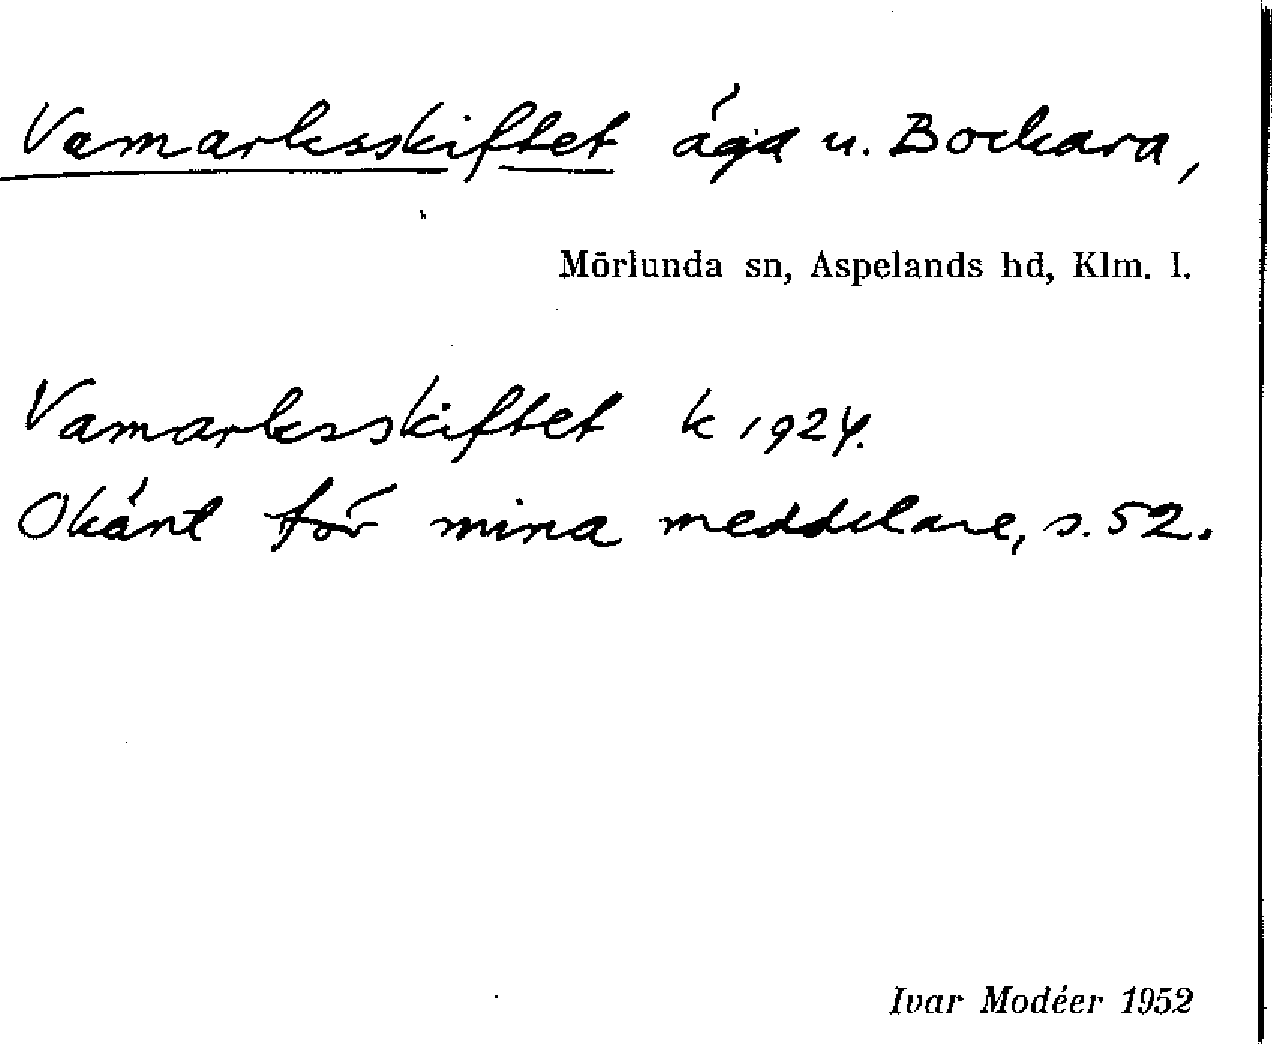 Vamarksskiftet äga u. Bockara,
Mörlunda sn, Aspelands hd, Klm. l.
Vamarksskiftet k 1924.
Okänt för mina meddelare, s. 52.
Ivar Modéer 1952